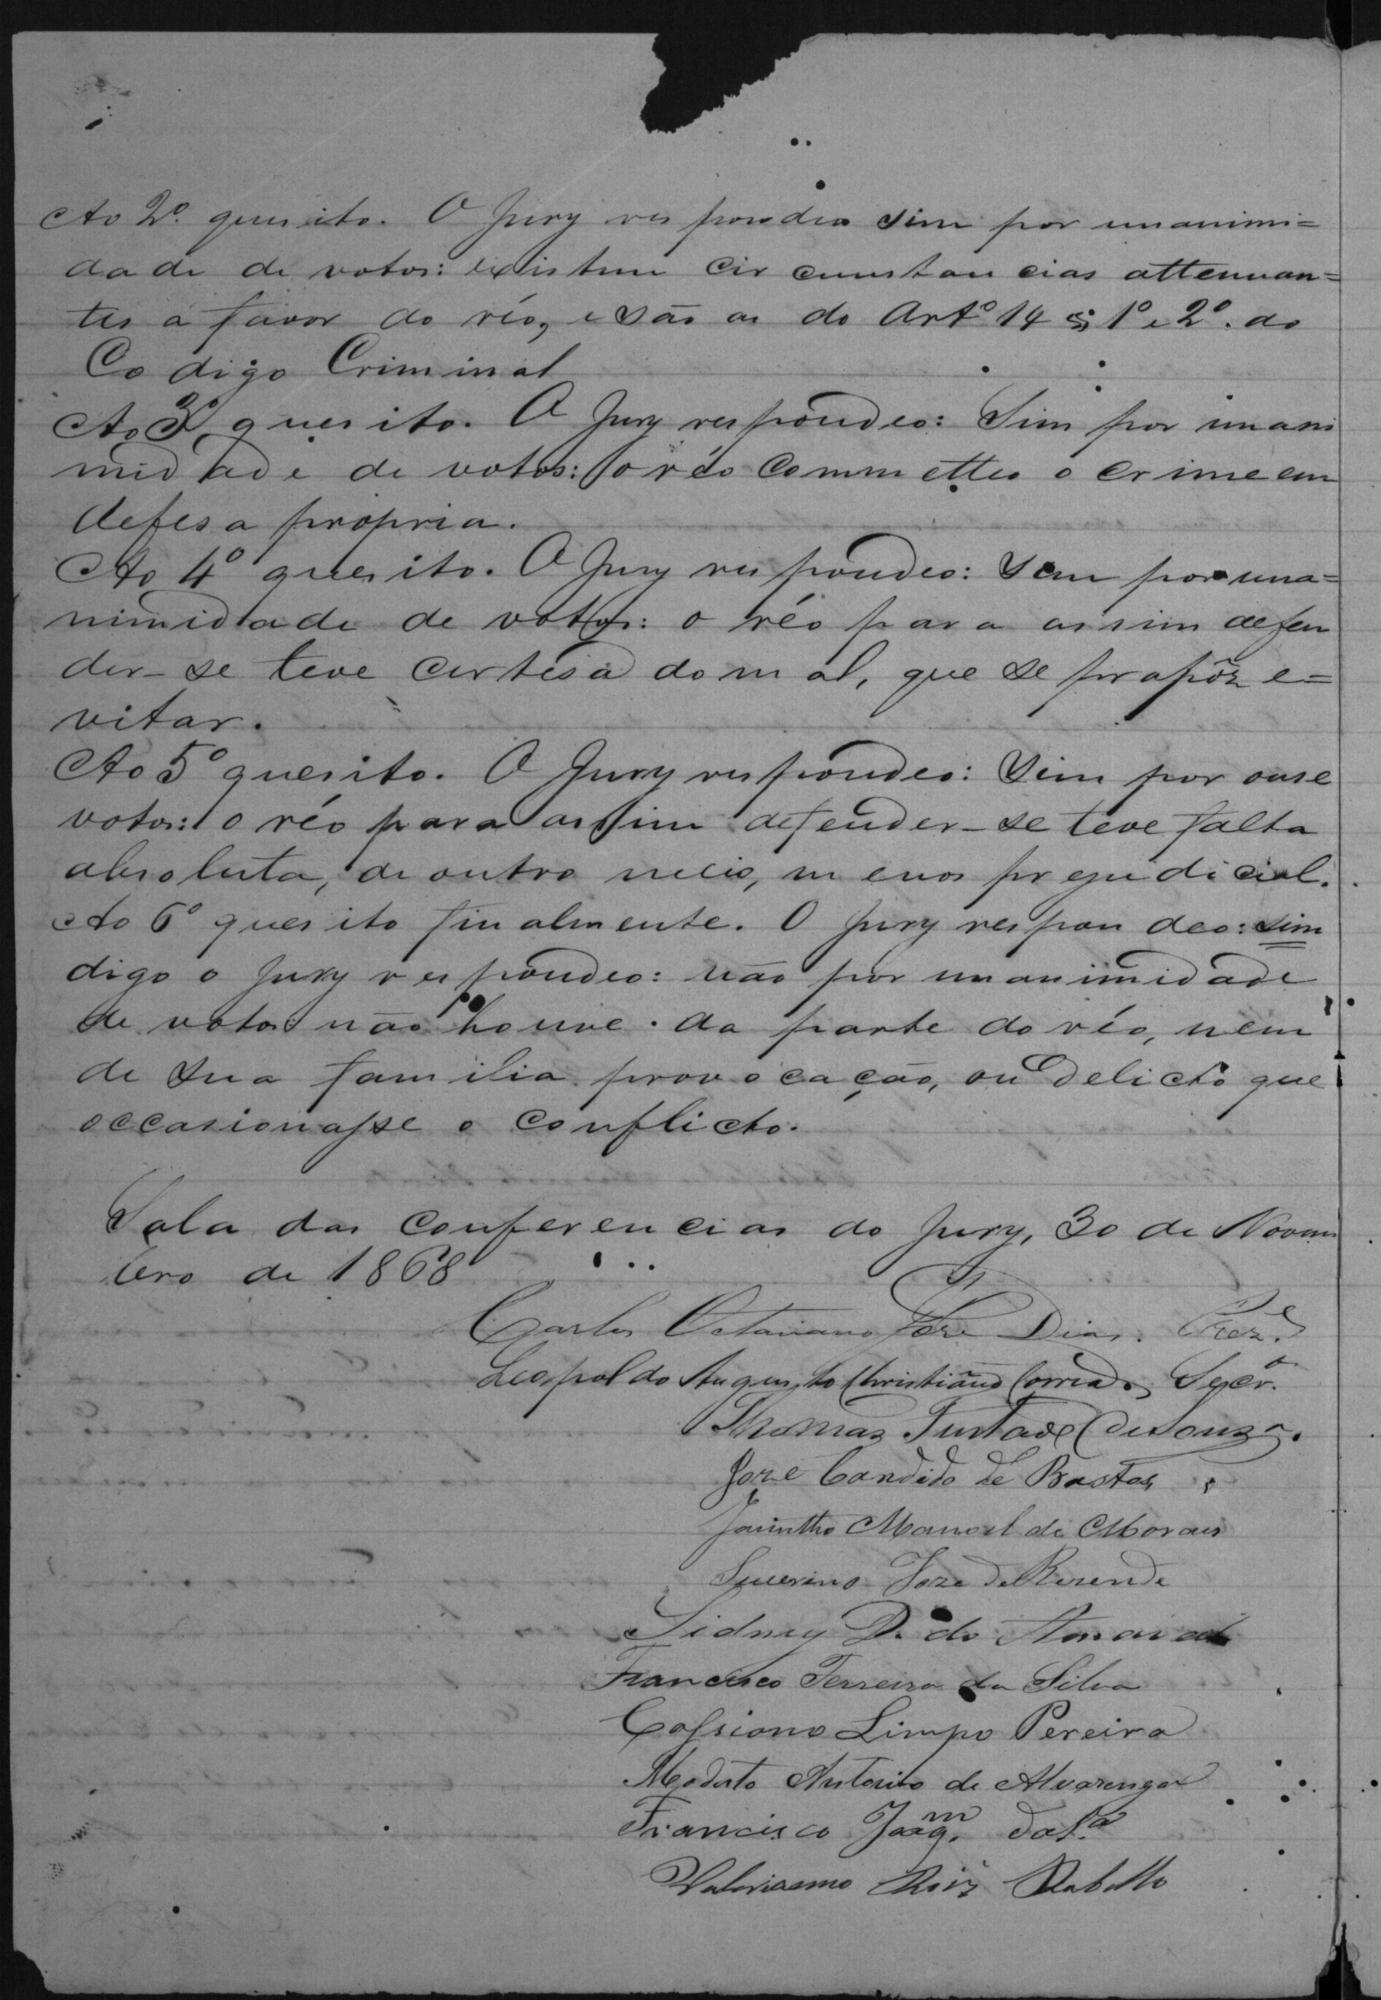 Ao 2º quesito. O Jury respondeo sim por unanimi=
dade de votos: existem circumstancias attenuan=
tes a favor do réo, e são as do Artº 14 §§ 1º e 2º. do
Codigo Criminal
Ao 3º quesito. O Jury respondeo: Sim por unani
midade de votos: o réo commetteo o crime em
defesa propria.
Ao 4º quesito. O Jury respondeo: Sem por una=
nimidade de votos: o réo para assim defen
der-se teve certesa do mal, que se propôz e=
vitar.
Ao 5º quesito. O Jury respondeo: Sim por onse
votos: o réo para assim defender-se teve falta
absoluta, de outro meio, menos prejudicial.
Ao 6º quesito finalmente. O Jury respondeo: sim
digo o Jury respondeo: não por unanimidade
de votos não houve da parte do réo, nem
de sua familia provocação, ou delicto que
occasionasse o conflicto.
Sala das conferencias do Jury, 30 de Novem
bro de 1868
Carlos Octaviano José Dias. Prezᵉ.
Leopoldo Augusto Christiano Corrêa, Secrº.
Thomaz Furtado de Souza.
Joze Candido de Bastos
Jacintho Manoel de Moraes
Severino Joze de Rezende
Sidney D. do Amaral
Francisco Ferreira da Silva
Cassiano Limpo Pereira
Modesto Antonio de Alvarenga
Francisco Joaqᵐ. da Sᵃ
Rabello